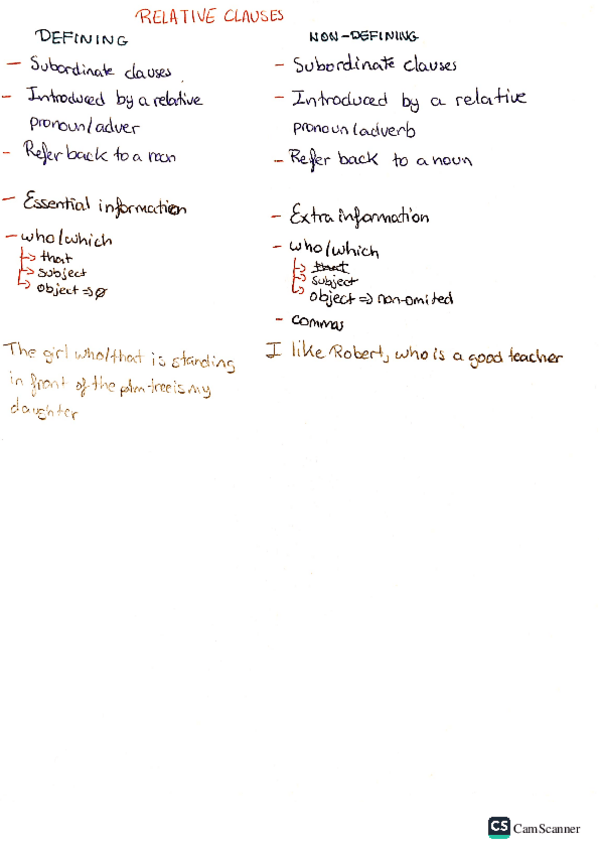 RELATIVE CLAUSES
DEFINING
- Subordinate clauses
- Introduced by a relative
pronoun/adver
- Refer back to a noun
- Essential information
- who/which
that
subject
object => ø
The girl who/that is standing
in front of the palm-tree is my
daughter
NON-DEFINING
- Subordinate clauses
- Introduced by a relative
pronoun/adverb
- Refer back to a noun
- Extra information
- who/which
that
subject
object => non-omited
- commas
I like Robert, who is a good teacher
CS CamScanner